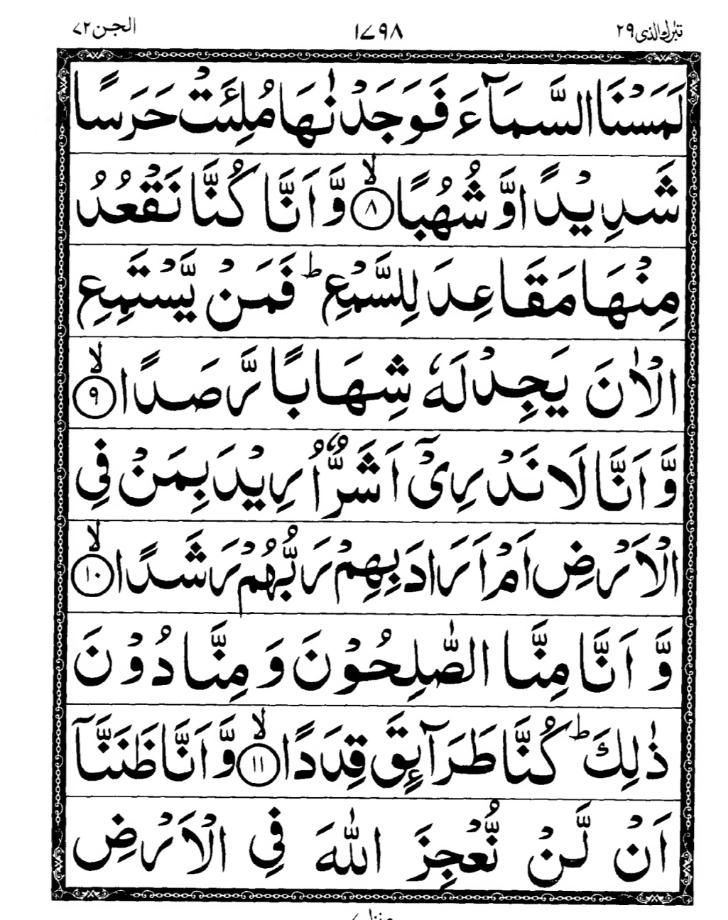 تبٰرك الذی ٢٩ ١٧٩٨ الجن ٧٢
لَمَسْنَا السَّمَآءَ فَوَجَدْنٰهَا مُلِئَتْ حَرَسًا
شَدِيْدًا وَّ شُهُبًا ۙ‏﴿٨﴾ وَّ اَنَّا كُنَّا نَقْعُدُ
مِنْهَا مَقَاعِدَ لِلسَّمْعِ ؕ فَمَنْ يَّسْتَمِعِ
الْاٰنَ يَجِدْ لَهٗ شِهَابًا رَّصَدًا ۙ‏﴿٩﴾
وَّ اَنَّا لَا نَدْرِيْۤ اَشَرٌّ اُرِيْدَ بِمَنْ فِي
الْاَرْضِ اَمْ اَرَادَ بِهِمْ رَبُّهُمْ رَشَدًا ۙ‏﴿١٠﴾
وَّ اَنَّا مِنَّا الصّٰلِحُوْنَ وَ مِنَّا دُوْنَ
ذٰلِكَ ؕ كُنَّا طَرَآئِقَ قِدَدًا ۙ‏﴿١١﴾ وَّ اَنَّا ظَنَنَّاۤ
اَنْ لَّنْ نُّعْجِزَ اللّٰهَ فِي الْاَرْضِ